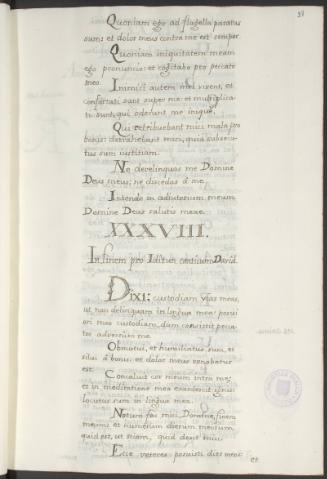 Quoniam ego ad flagella paratus
sum: et dolor meus contra me est semper.
Quoniam iniquitatem meam
ego pronuntio: et cogitabo pro peccato
meo.
Inimici autem mei vivent, et
confortati sunt super me: et multiplica-
ti sunt, qui oderunt me inique.
Qui retribuebant mihi mala pro
bonis: detrahebant mihi, quia
tus sum justitiam.
Ne derelinquas me Domine
Deus meus: ne discedas a me.
Intende in adiutorium meum
Domine Deus salutis meae.
XXXVIII.
In finem pro Idithun canticum David.
DIXI: custodiam vias meas,
ut non delinquam in lingua mea: posui
ori meo custodiam, dum consisteret pecca-
tor adversum me.
Obmutui, et humiliatus sum, et
silui a bonis: et dolor meus renovatus
est.
Concaluit cor meum intra me;
et in meditatione mea exardescet ignis.
Locutus sum in lingua mea:
Notum fac mihi Domine, finem
meum: et numerum dierum meorum,
quid est, ut sciam, quid desit mihi.
Ecce veteres posuisti dies meos:
et